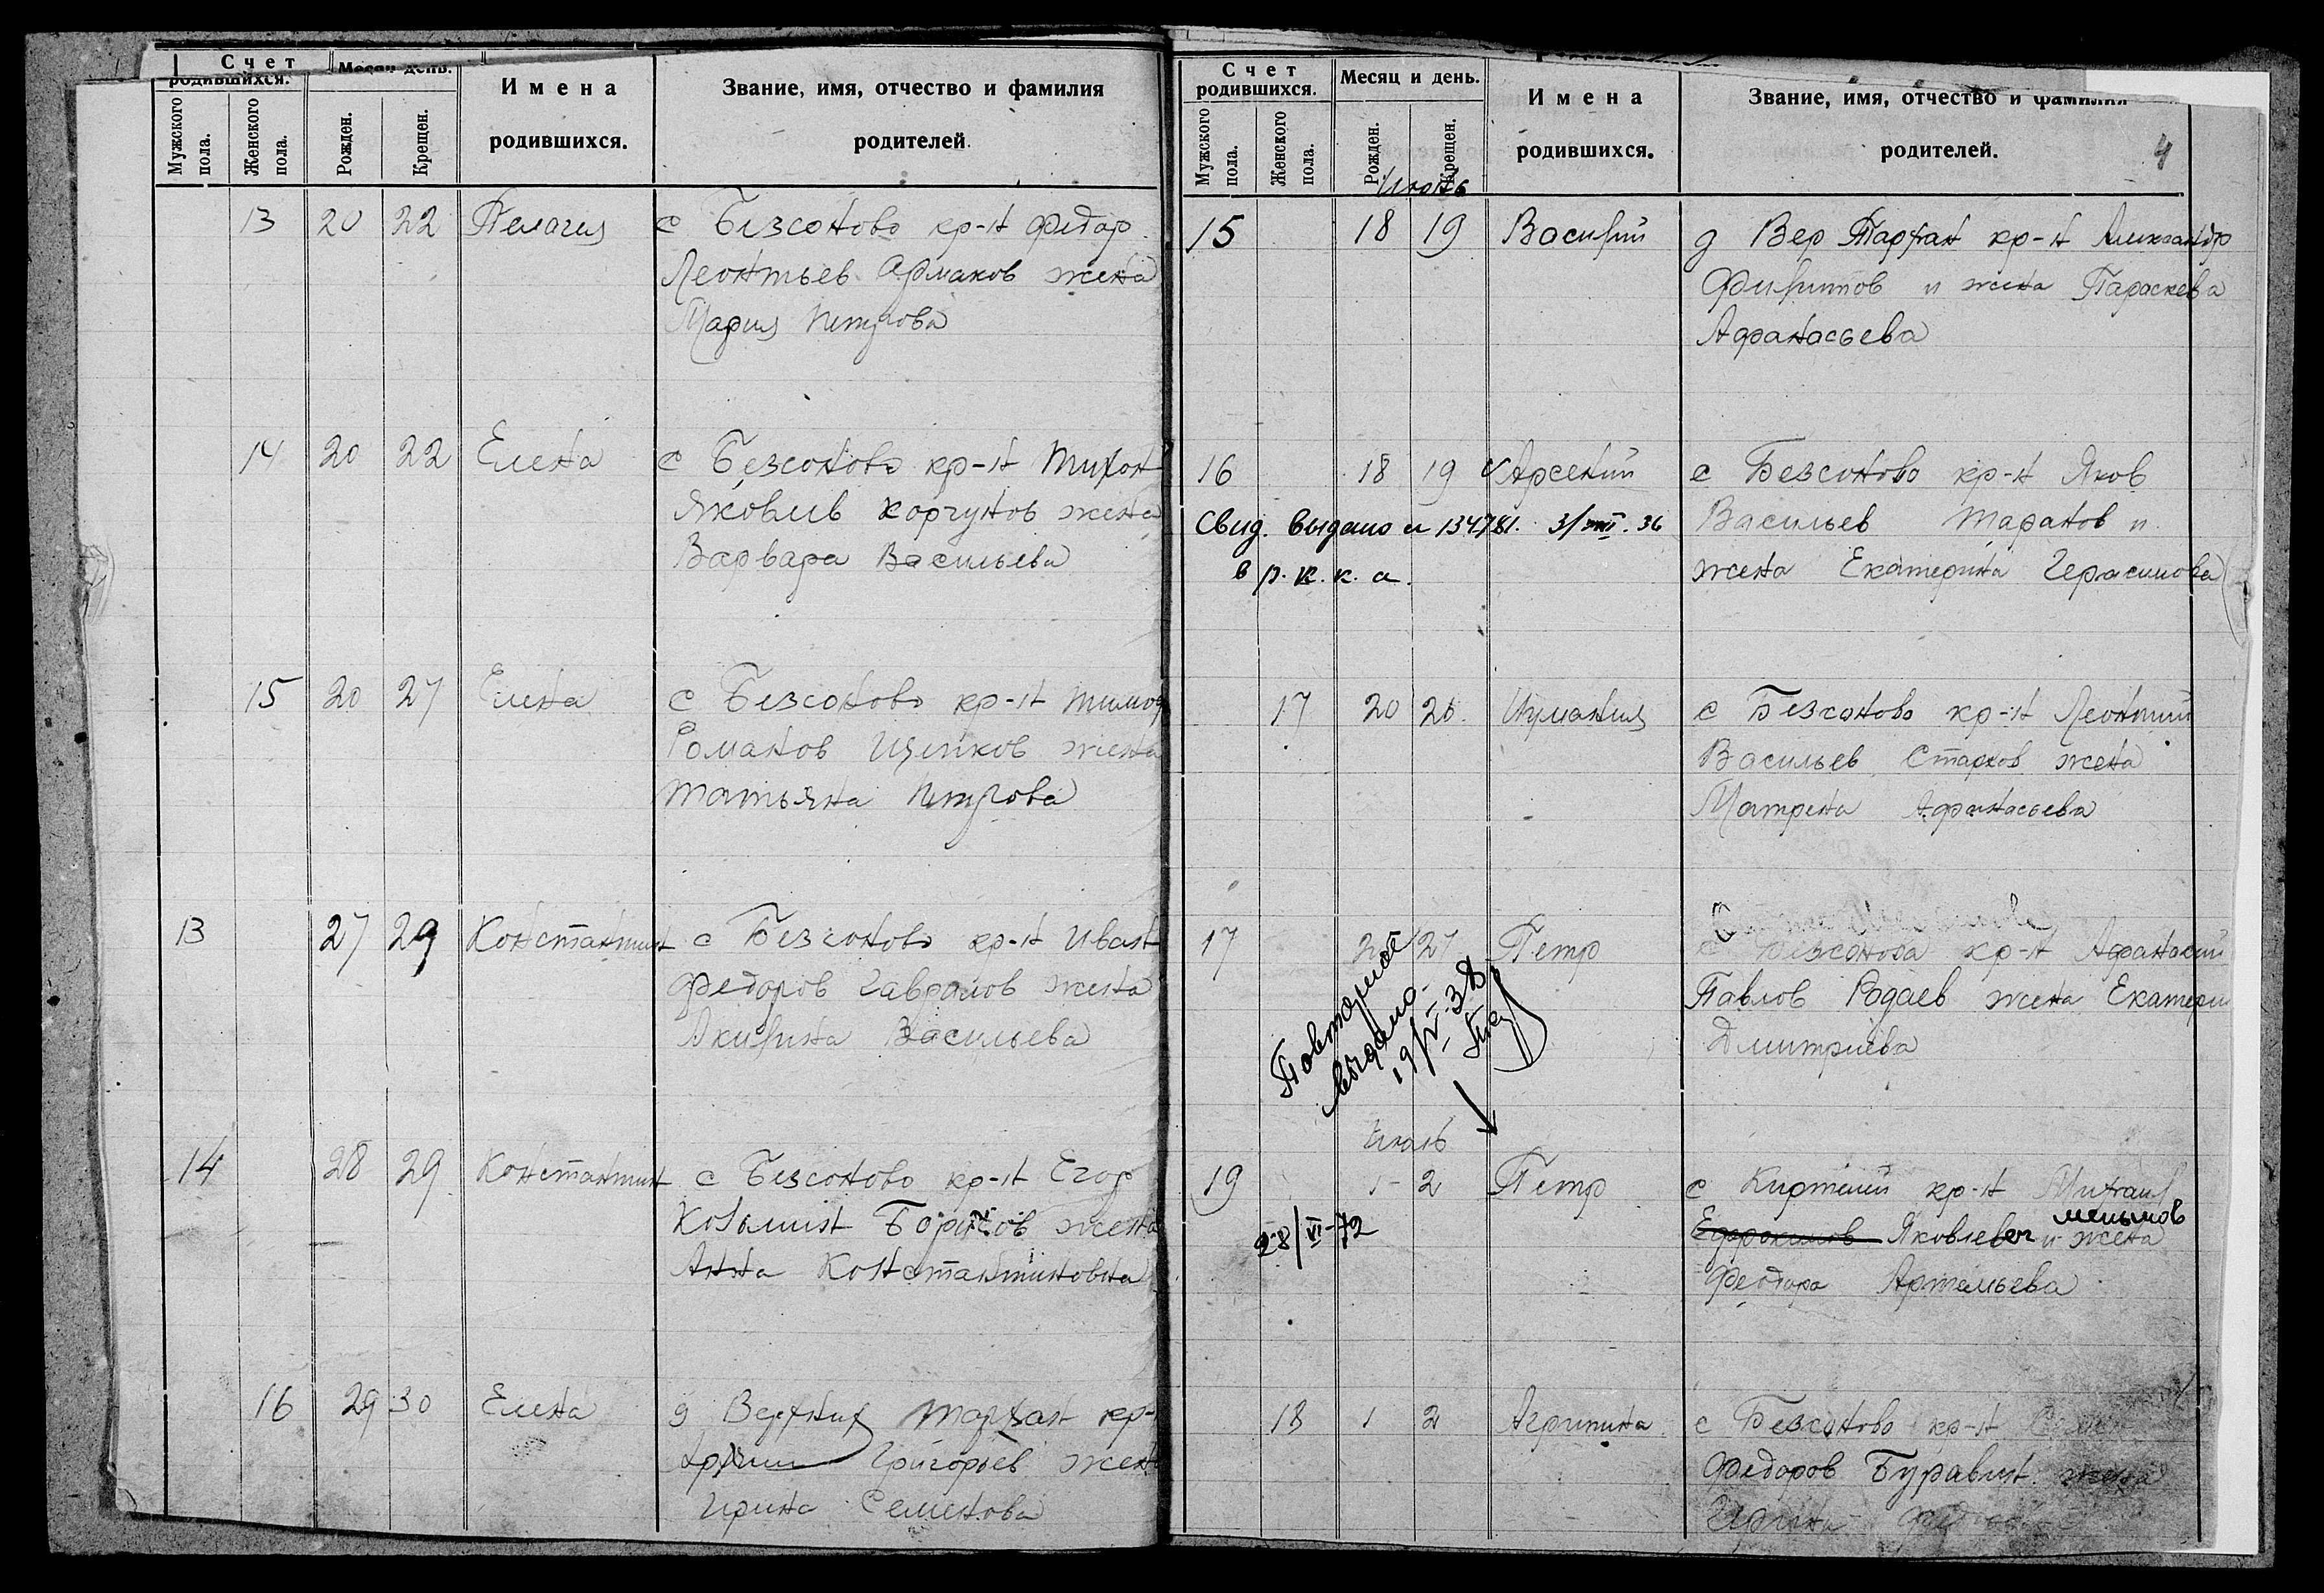 Счет родившихся.
Месяц день.
Имена родившихся.
Звание, имя, отчество и фамилия родителей.
Мужского пола.
Женского пола.
Рожден.
Крещен.
13 20 22 Пелагия с Безсоново кр-н Федор
Леонтьев Армаков жена
Мария Петрова
14 20 22 Елена с Безсоново кр-н Тихон
Яковлев Коргунов жена
Варвара Васильева
15 20 27 Елена с Безсоново кр-н Тимоф
Романов Щепков жена
Татьяна Петрова
13 27 29 Константин с Безсоново кр-н Иван
Федоров Гаврилов жена
Акилина Васильева
14 28 29 Константин с Безсоново кр-н Егор
Козьмин Борисов жена
Анна Константиновна
16 29 30 Елена д Верхних Тархан кр-
Архип Григорьев жена
Ирина Семенова
Счет родившихся.
Месяц и день.
Имена родившихся.
Звание, имя, отчество и фамилия родителей.
4
Мужского пола.
Женского пола.
Рожден.
Крещен.
Июнь
15 18 19 Василий д Вер Тархан кр-н Александр
Филиппов и жена Параскева
Афанасьева
16 18 19 Арсений с Безсоново кр-н Яков
Свид. выдано и 134781. 31/VIII.36 Васильев Таранов и
в р.к.к.а. жена Екатерина Герасимова
17 20 26. с Безсоново кр-н Леонтий
Васильев Старков жена
Матрена Афанасьева
17 26 27 Петр с Безсонова кр-н Афанасий
Павлов Родаев жена Екатери
Дмитриева
Повторное
выдано
19/V-38
Июль
19 1 2 Петр с Киртели кр-н Михаил
мельнов
Евдокимов Яковлевич и жена
28/VI-72
Феодора Артемьева
18 1 2 Агрипина с Безсоново кр-н
Федоров Буравин жена